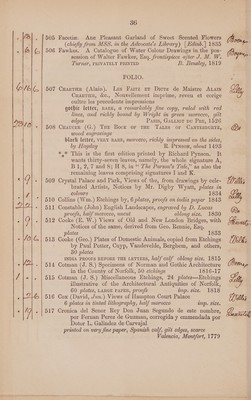 36
505 Faernie. Ane Pleasant Garland of Sweet Scented Flowers
(chiefly from MSS. in the Advocate's Library) [Edinb.] 1835
506 Fawkes. A Catalogue of Water Colour Drawings in the possession of Walter Fawkes, Esq. frontispiece after J. M. W.
Turner, PRIVATELY PRINTED B. Bensley, 1819
FOLIO.
507 CHARTIER (Alain). LES FAITZ ET DITTZ de Maistre ALAIN
CHARTIER, &c., Nouvellement imprime, reveu et corige
oultre les precedents impressions
gothic letter, RARE, a remarkably fine copy, ruled with red
lines, and richly bound by Wright in green morocco, gilt
edges PARIS, GALLIOT DU PRE, 1526
508 CHAUCER (G.) THE BOOK OF THE TALES OF CANTERBURYE,
wood engravings
black letter, VERY RARE, morocco, richly impressed on the sides,
by Hagday R. PYNSON, about 1493
*** This is the first edition printed by Richard Pynson. It
wants thirty-seven leaves, namely, the whole signature A,
B 1, 2, 7 and 8; H 8, in "The Parson's Tale," as also the
remaining leaves comprising signatures I and K
509 Crystal Palace and Park, Views of the, from drawings by celebrated Artists, Notices by Mr. Digby Wyatt, plates in
colours 1854
510 Collins (Wm.) Etchings by, 6 plates, proofs on india paper 1845
511 Constable (John) English Landscapes, engraved by D. Lucas
proofs, half morocco, uncut oblong size. 1830
512 Cooke (E. W.) Views of Old and New London Bridges, with
Notices of the same, derived from Geo. Rennie, Esq.
plates 1833
513 Cooke (Geo.) Plates of Domestic Animals, copied from Etchings
by Paul Potter, Cuyp, Vandevelde, Berghem, and others,
20 plates
INDIA PROOFS BEFORE THE LETTERS, half calf oblong size. 1815
514 Cotman (J. S.) Specimens of Norman and Gothic Architecture
in the County of Norfolk, 50 etchings 1816-17
515 Cotman (J. S.) Miscellaneous Etchings, 24 plates—Etchings
illustrative of the Architectural Antiquities of Norfolk,
60 plates, LARGE PAPER, proofs imp. size. 1818
516 Cox (David, Jun.) Views of Hampton Court Palace
6 plates in tinted lithography, half morocco imp. size.
517 Cronica del Senor Rey Don Juan Segundo de este nombre,
por Fernan Perez de Guzman, corregida y enmendada por
Dotor L. Galindez de Carvajal
printed on very fine paper, Spanish calf, gilt edges, scarce
Valencia, Montfort, 1779